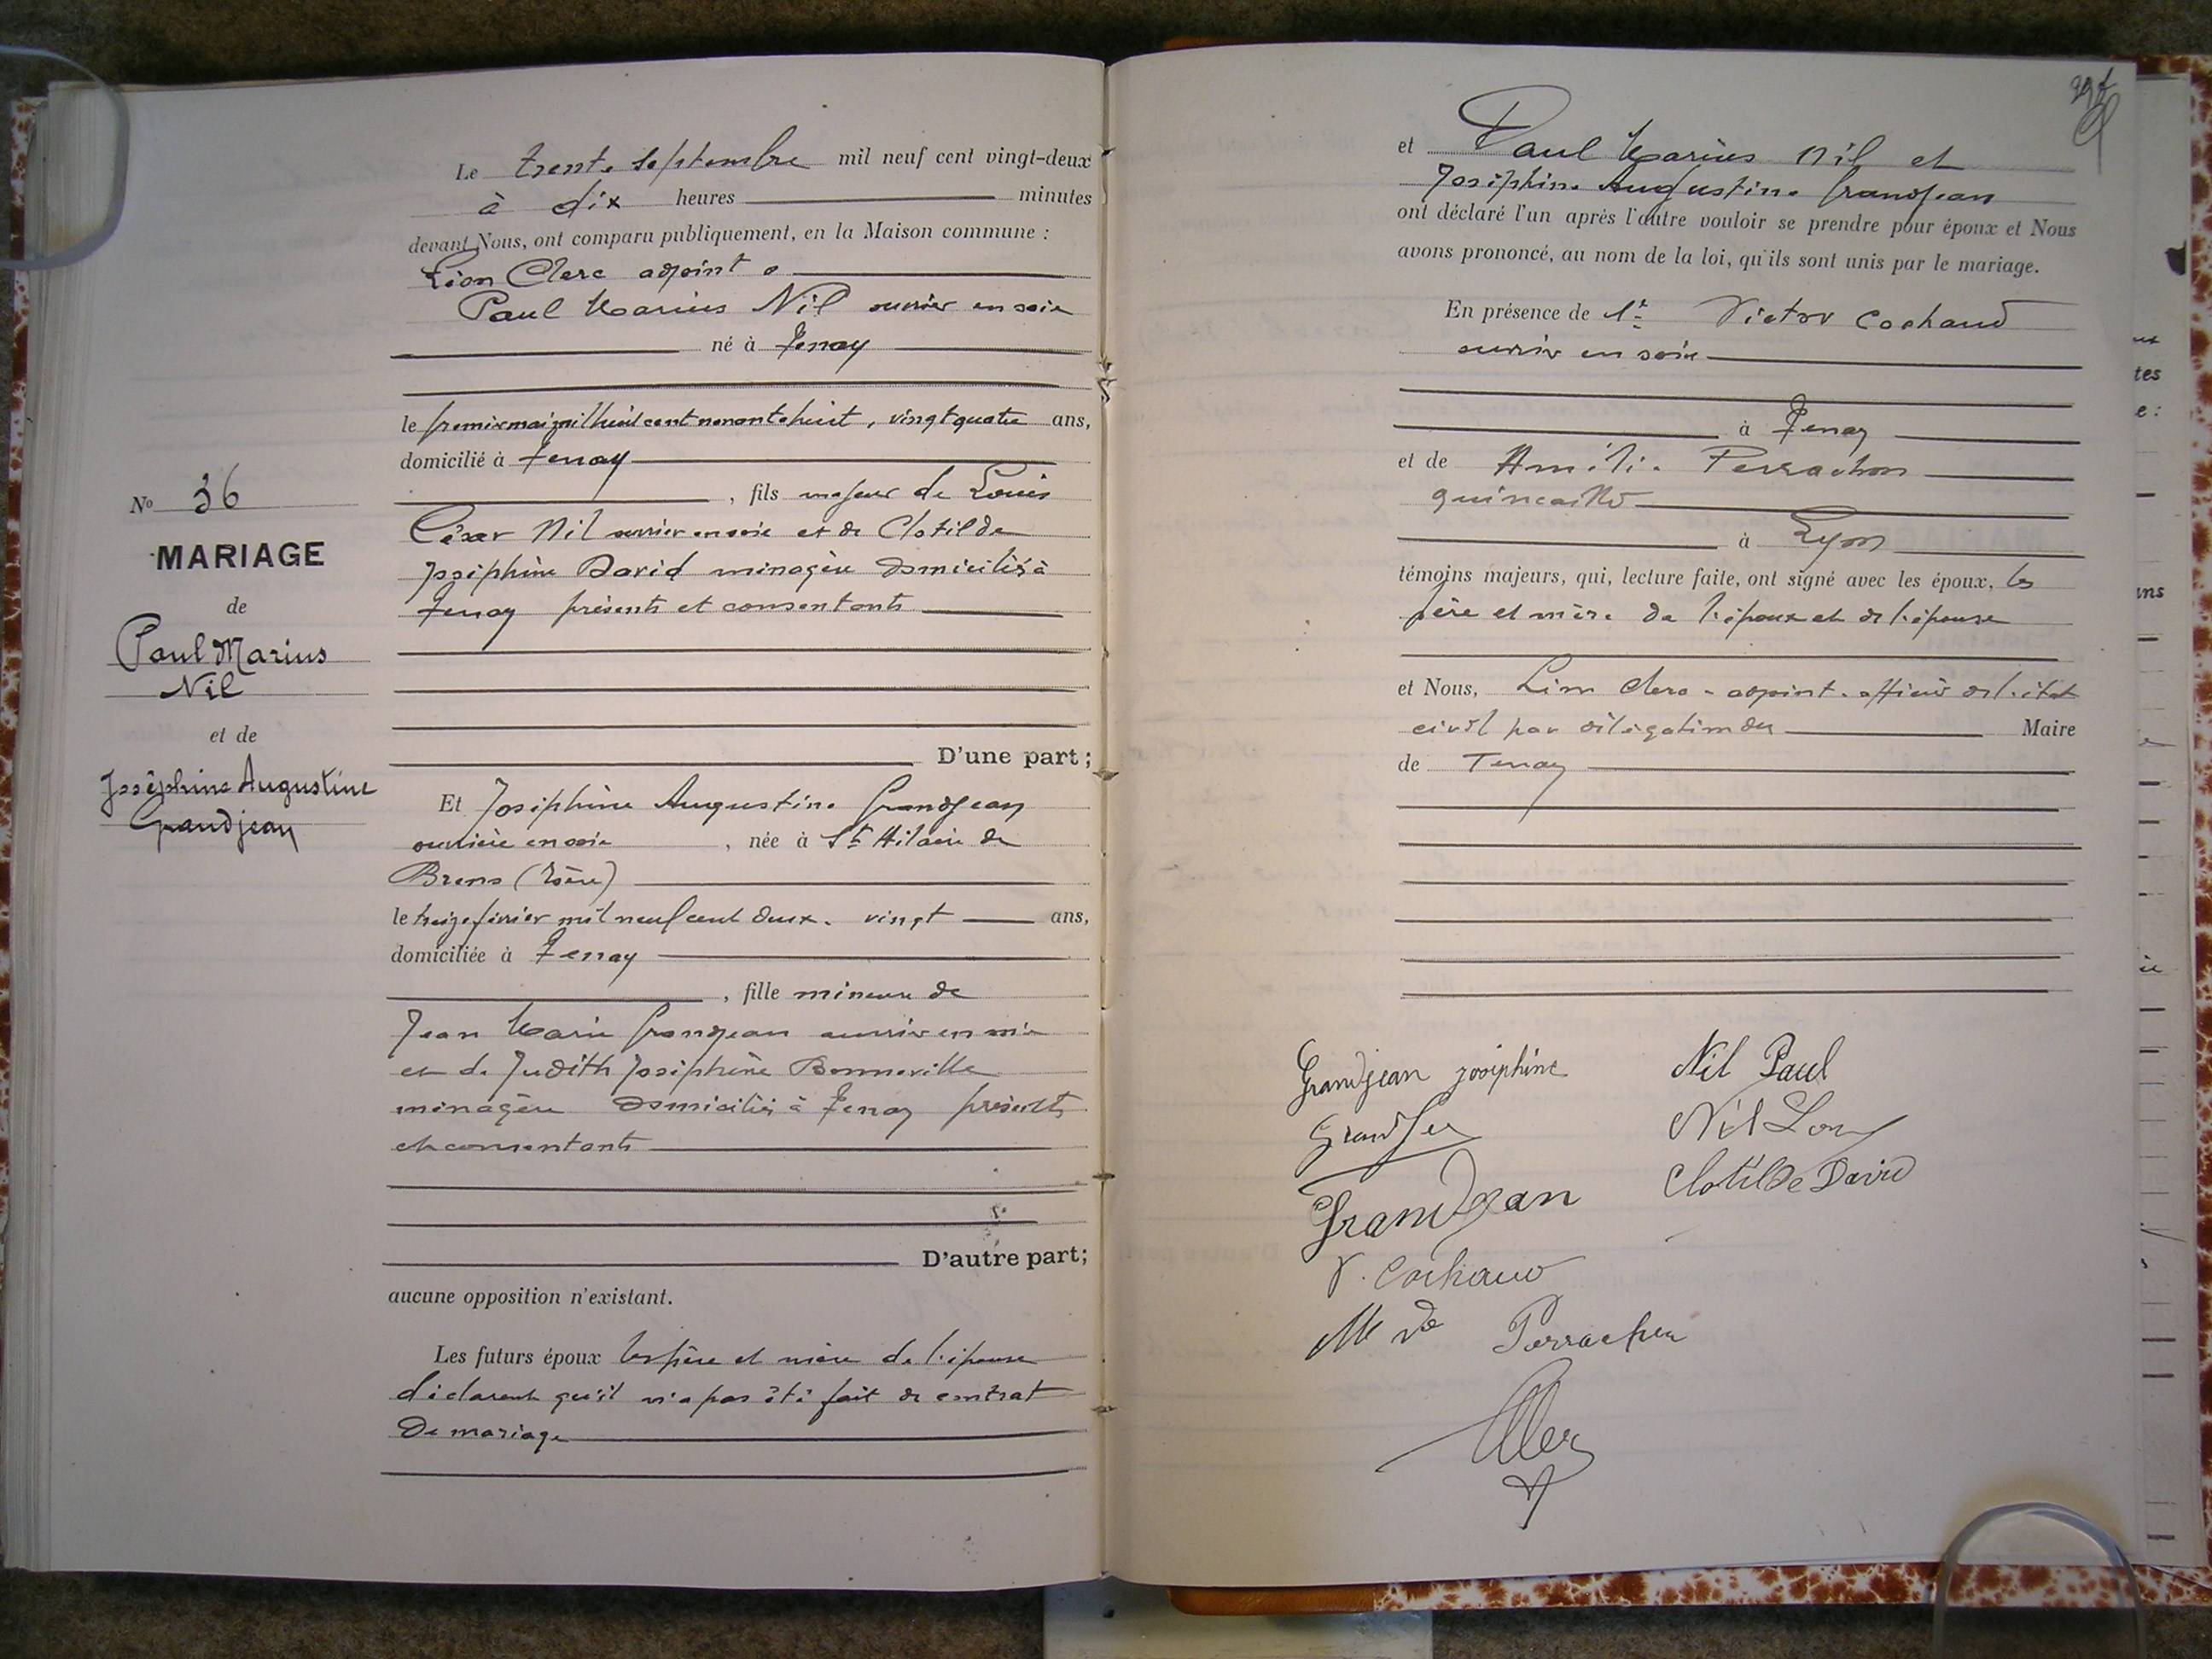 N° 36
MARIAGE
de
Paul Marius
Nil
et de
Joséphine Augustine
Grandjean
Le trente septembre mil neuf cent vingt-deux
à dix heures minutes
devant Nous, ont comparu publiquement, en la Maison commune :
Léon Clerc adjoint
Paul Marius Nil ouvrier en soie
né à Tenay
le premier mai mil huit cent nonante huit, vingt quatre ans,
domicilié à Tenay
, fils majeur de Louis
César Nil ouvrier en soie et de Clotilde
Joséphine David ménagère domiciliés à
Tenay présents et consentants
D'une part;
Et Joséphine Augustine Grandjean
ouvrière en soie , née à St Hilaire de
Brens (Isère)
le treize février mil neuf cent deux. vingt ans,
domiciliée à Tenay
, fille mineure de
Jean Marie Grandjean ouvrier en soie
et de Judith Joséphine Bonneville
ménagère domiciliés à Tenay présents
et consentants
D'autre part;
aucune opposition n'existant.
Les futurs époux les père et mère de l'épouse
déclarent qu'il n'a pas été fait de contrat
de mariage
et Paul Marius Nil et
Joséphine Augustine Grandjean
ont déclaré l'un après l'autre vouloir se prendre pour époux et Nous
avons prononcé, au nom de la loi, qu'ils sont unis par le mariage.
En présence de 1° Victor Cochaud
ouvrier en soie
à Tenay
et de Amélie Perrachon
à Lyon
témoins majeurs, qui, lecture faite, ont signé avec les époux, les
père et mère de l'époux et de l'épouse
et Nous, Léon Clerc adjoint officier de l'état
civil par délégation du Maire
de Tenay
Grandjean Joséphine Nil Paul
Nil
Clotilde David
Grandjean
V. Cochaud
Perrachon